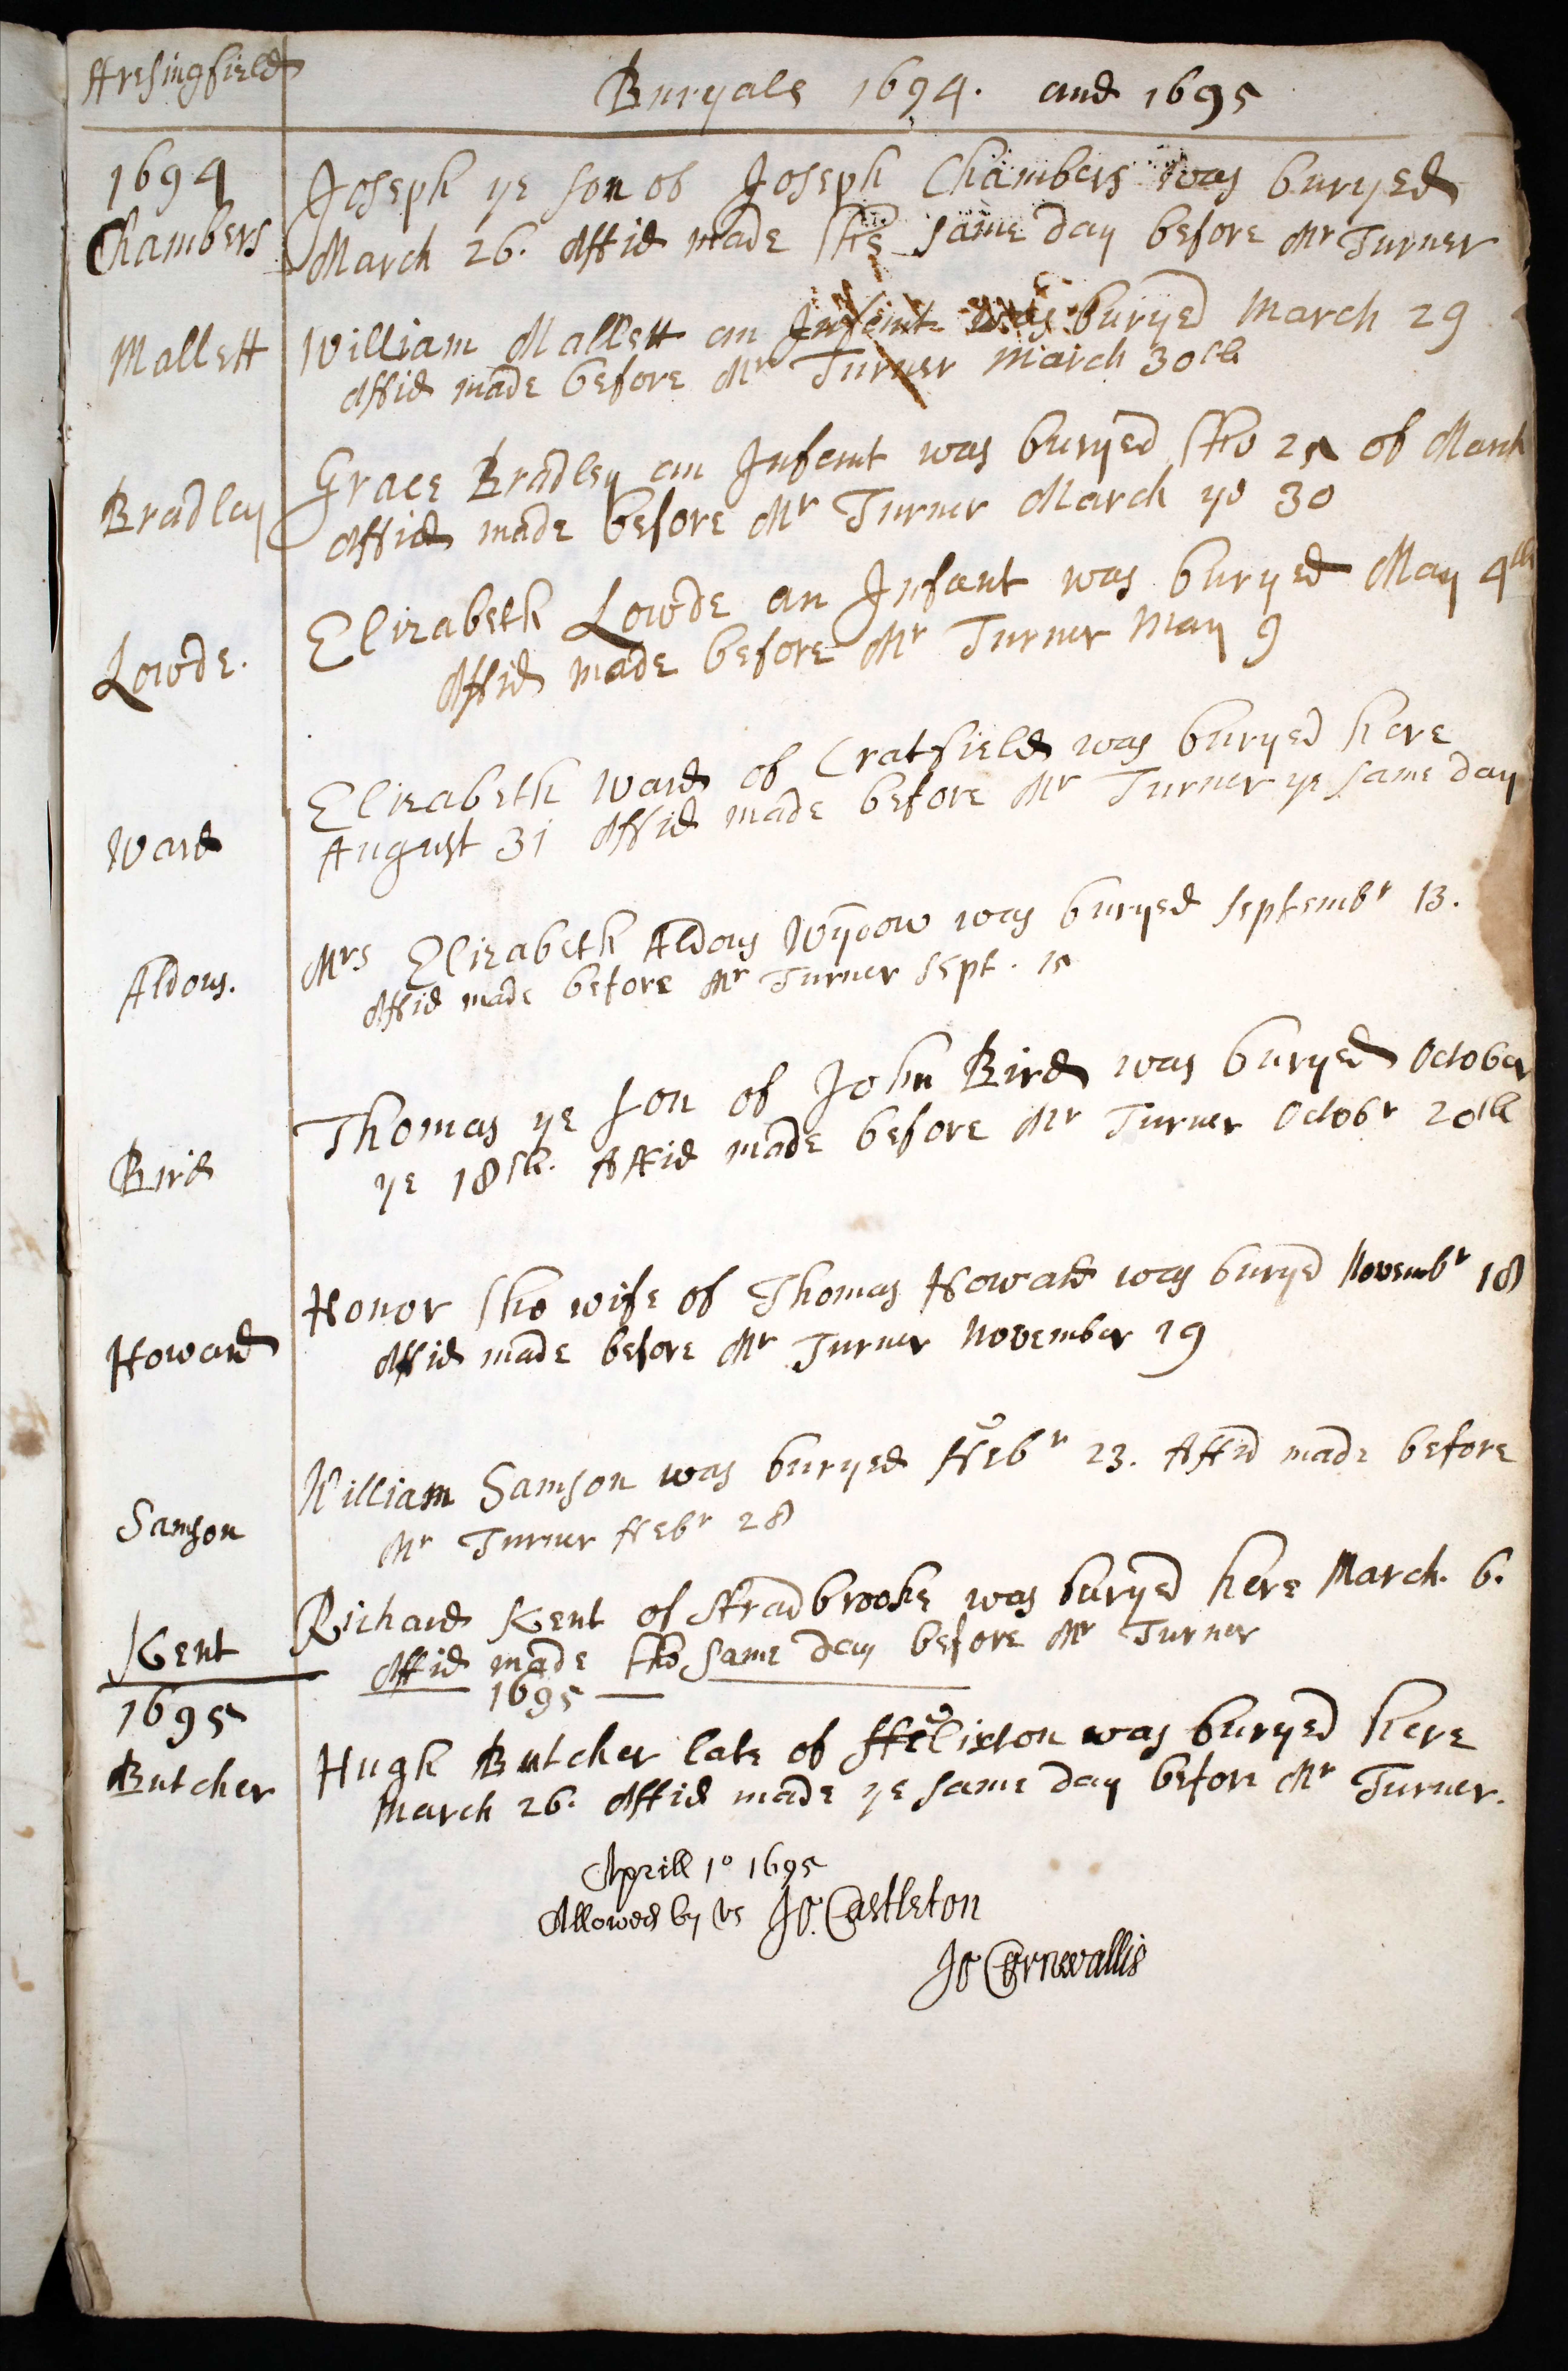 ffresingfield
Buryals 1694. and 1695
1694
Chambers
Joseph ye son of Joseph Chambers was buryed
March 26. Affid made the same day before Mr Turner
Mallett
William Mallett an Infant was buryed March 29
Affid made before Mr Turner March 30th
Bradley
Grace Bradley an Infant was buryed the 25 of March
Affid made before Mr Turner March ye 30
Lowde.
Elizabeth Lowde an Infant was buryed May 4th
Affid made before Mr Turner May 9
Ward
Elizabeth Ward of Cratfield was buryed here
August 31 Affid made before Mr Turner ye same day
Aldous.
Mrs Elizabeth Aldous Wydow was buryed Septembr 13.
Affid made before Mr Turner Sept. 15
Bird
Thomas ye son of John Bird was buryed October
ye 18th. Affid made before Mr Turner Octobr 20th
Howard
Honor the wife of Thomas Howard was buryed Novembr 18
Affid made before Mr Turner November 19
Samson
William Samson was buryed ffebr 23. Affid made before
Mr Turner ffebr 28
Kent
Richard Kent of Stradbrooke was buryed here March. 6.
Affid made the same day before Mr Turner
1695
1695
Butcher
Hugh Butcher late of fflixton was buryed here
March 26. Affid made ye same day before Mr Turner.
Aprill 1o 1695
Allowed by vs Jo. Castleton
Jo Cornwallis